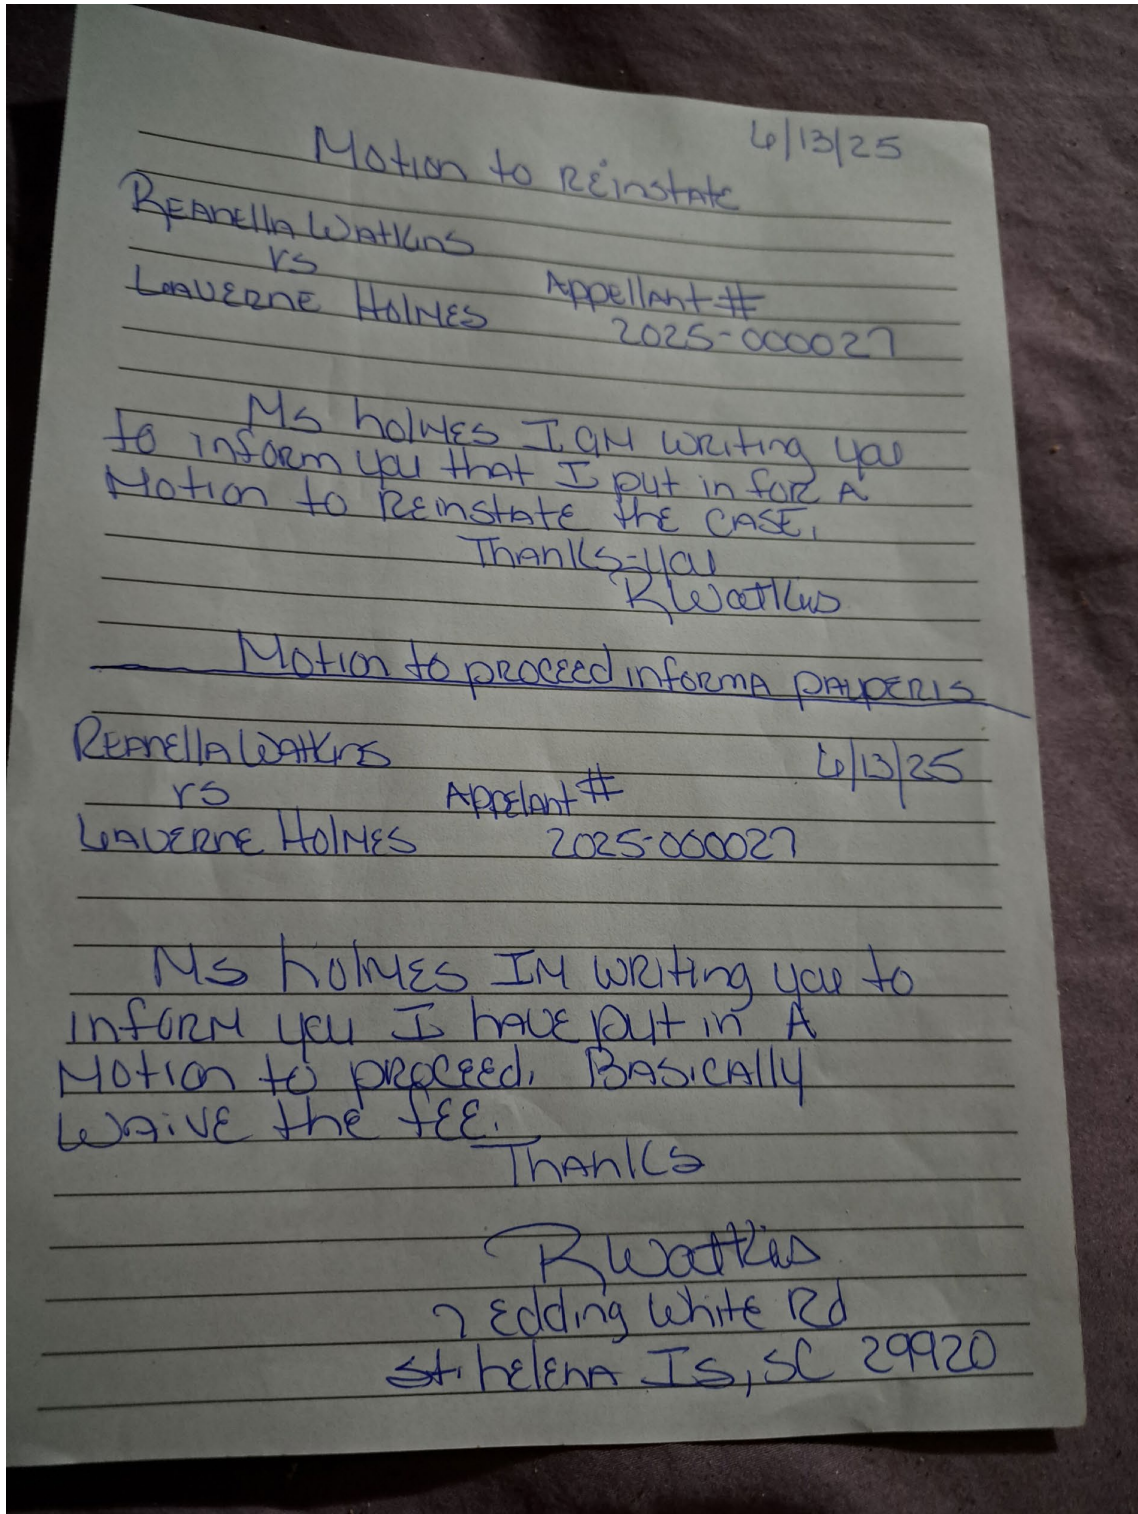 6/13/25
Motion to Reinstate
Reanella Watkins
vs
Laverne Holmes
Appellant #
2025-000027
Ms holmes I am writing you
to inform you that I put in for A
Motion to Reinstate the CASE.
Thanks-you
R Watkins
Motion to proceed informa pauperis
Reanella Watkins
6/13/25
vs
Appelant #
Laverne Holmes
2025-000027
Ms holmes Im writing you to
inform you I have put in A
Motion to proceed. Basically
waive the fee.
Thanks
R Watkins
7 Edding White Rd
St. helena Is, SC 29920